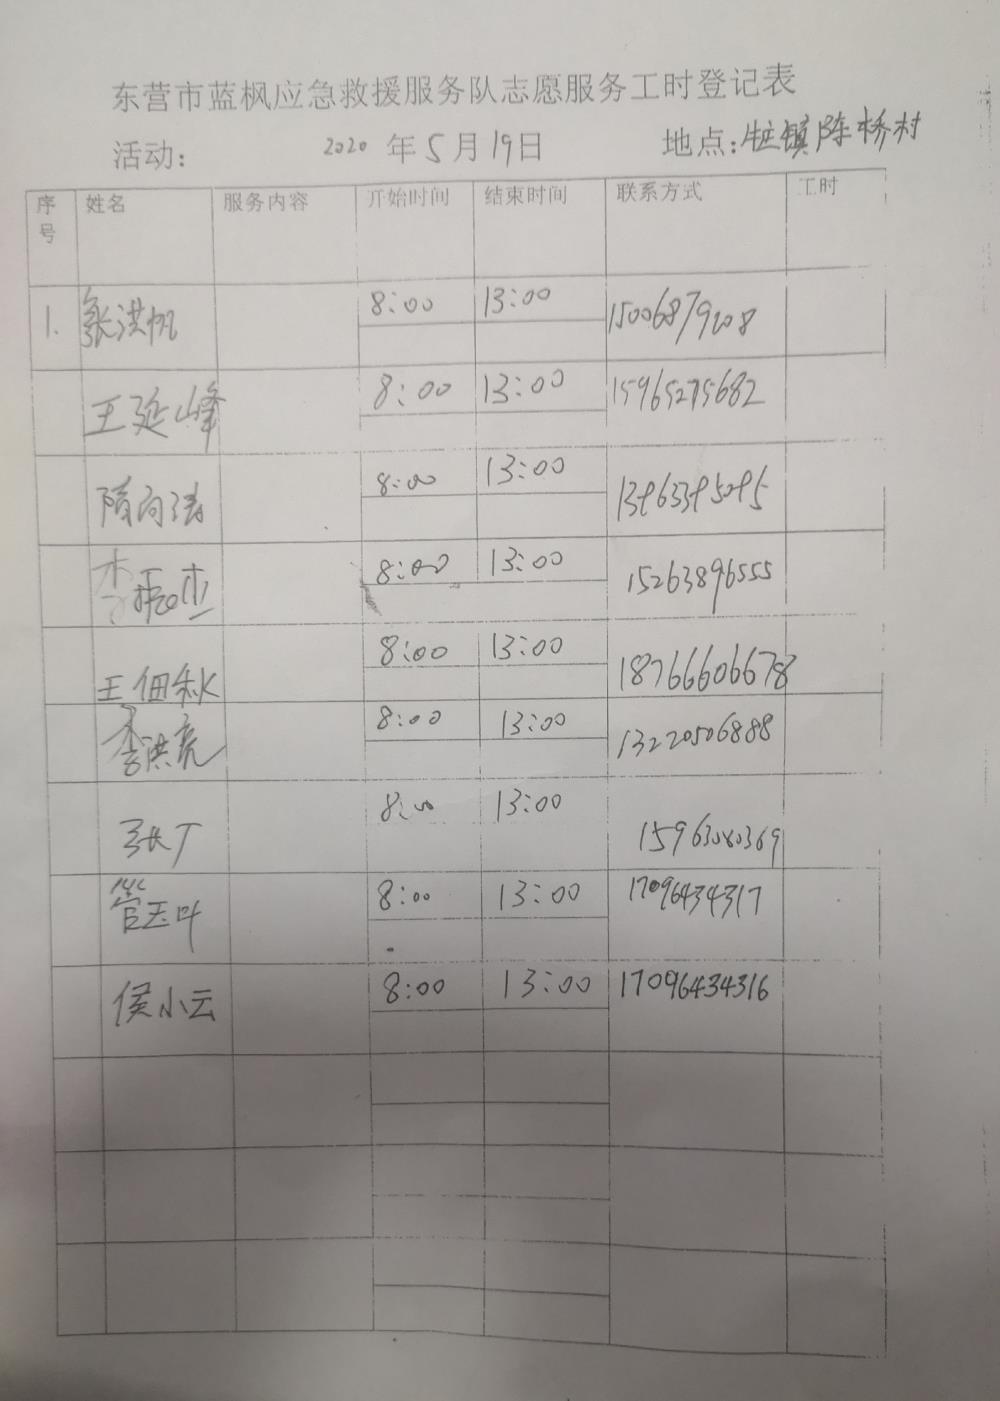 东营市蓝枫应急救援服务队志愿服务工时登记表
活动: 2020年5月19日 地点:镇陈桥村
序号 姓名 服务内容 开始时间 结束时间 联系方式 工时
1. 张洪帆 8:00 13:00 15006879208
王延峰 8:00 13:00 15965275682
隋向涛 8:00 13:00
李振杰 8:00 13:00 15263896555
王佃秋 8:00 13:00 18766606678
李洪亮 8:00 13:00 13220506888
张广 8:00 13:00 15963080369
管玉叶 8:00 13:00 17096434317
侯小云 8:00 13:00 17096434316